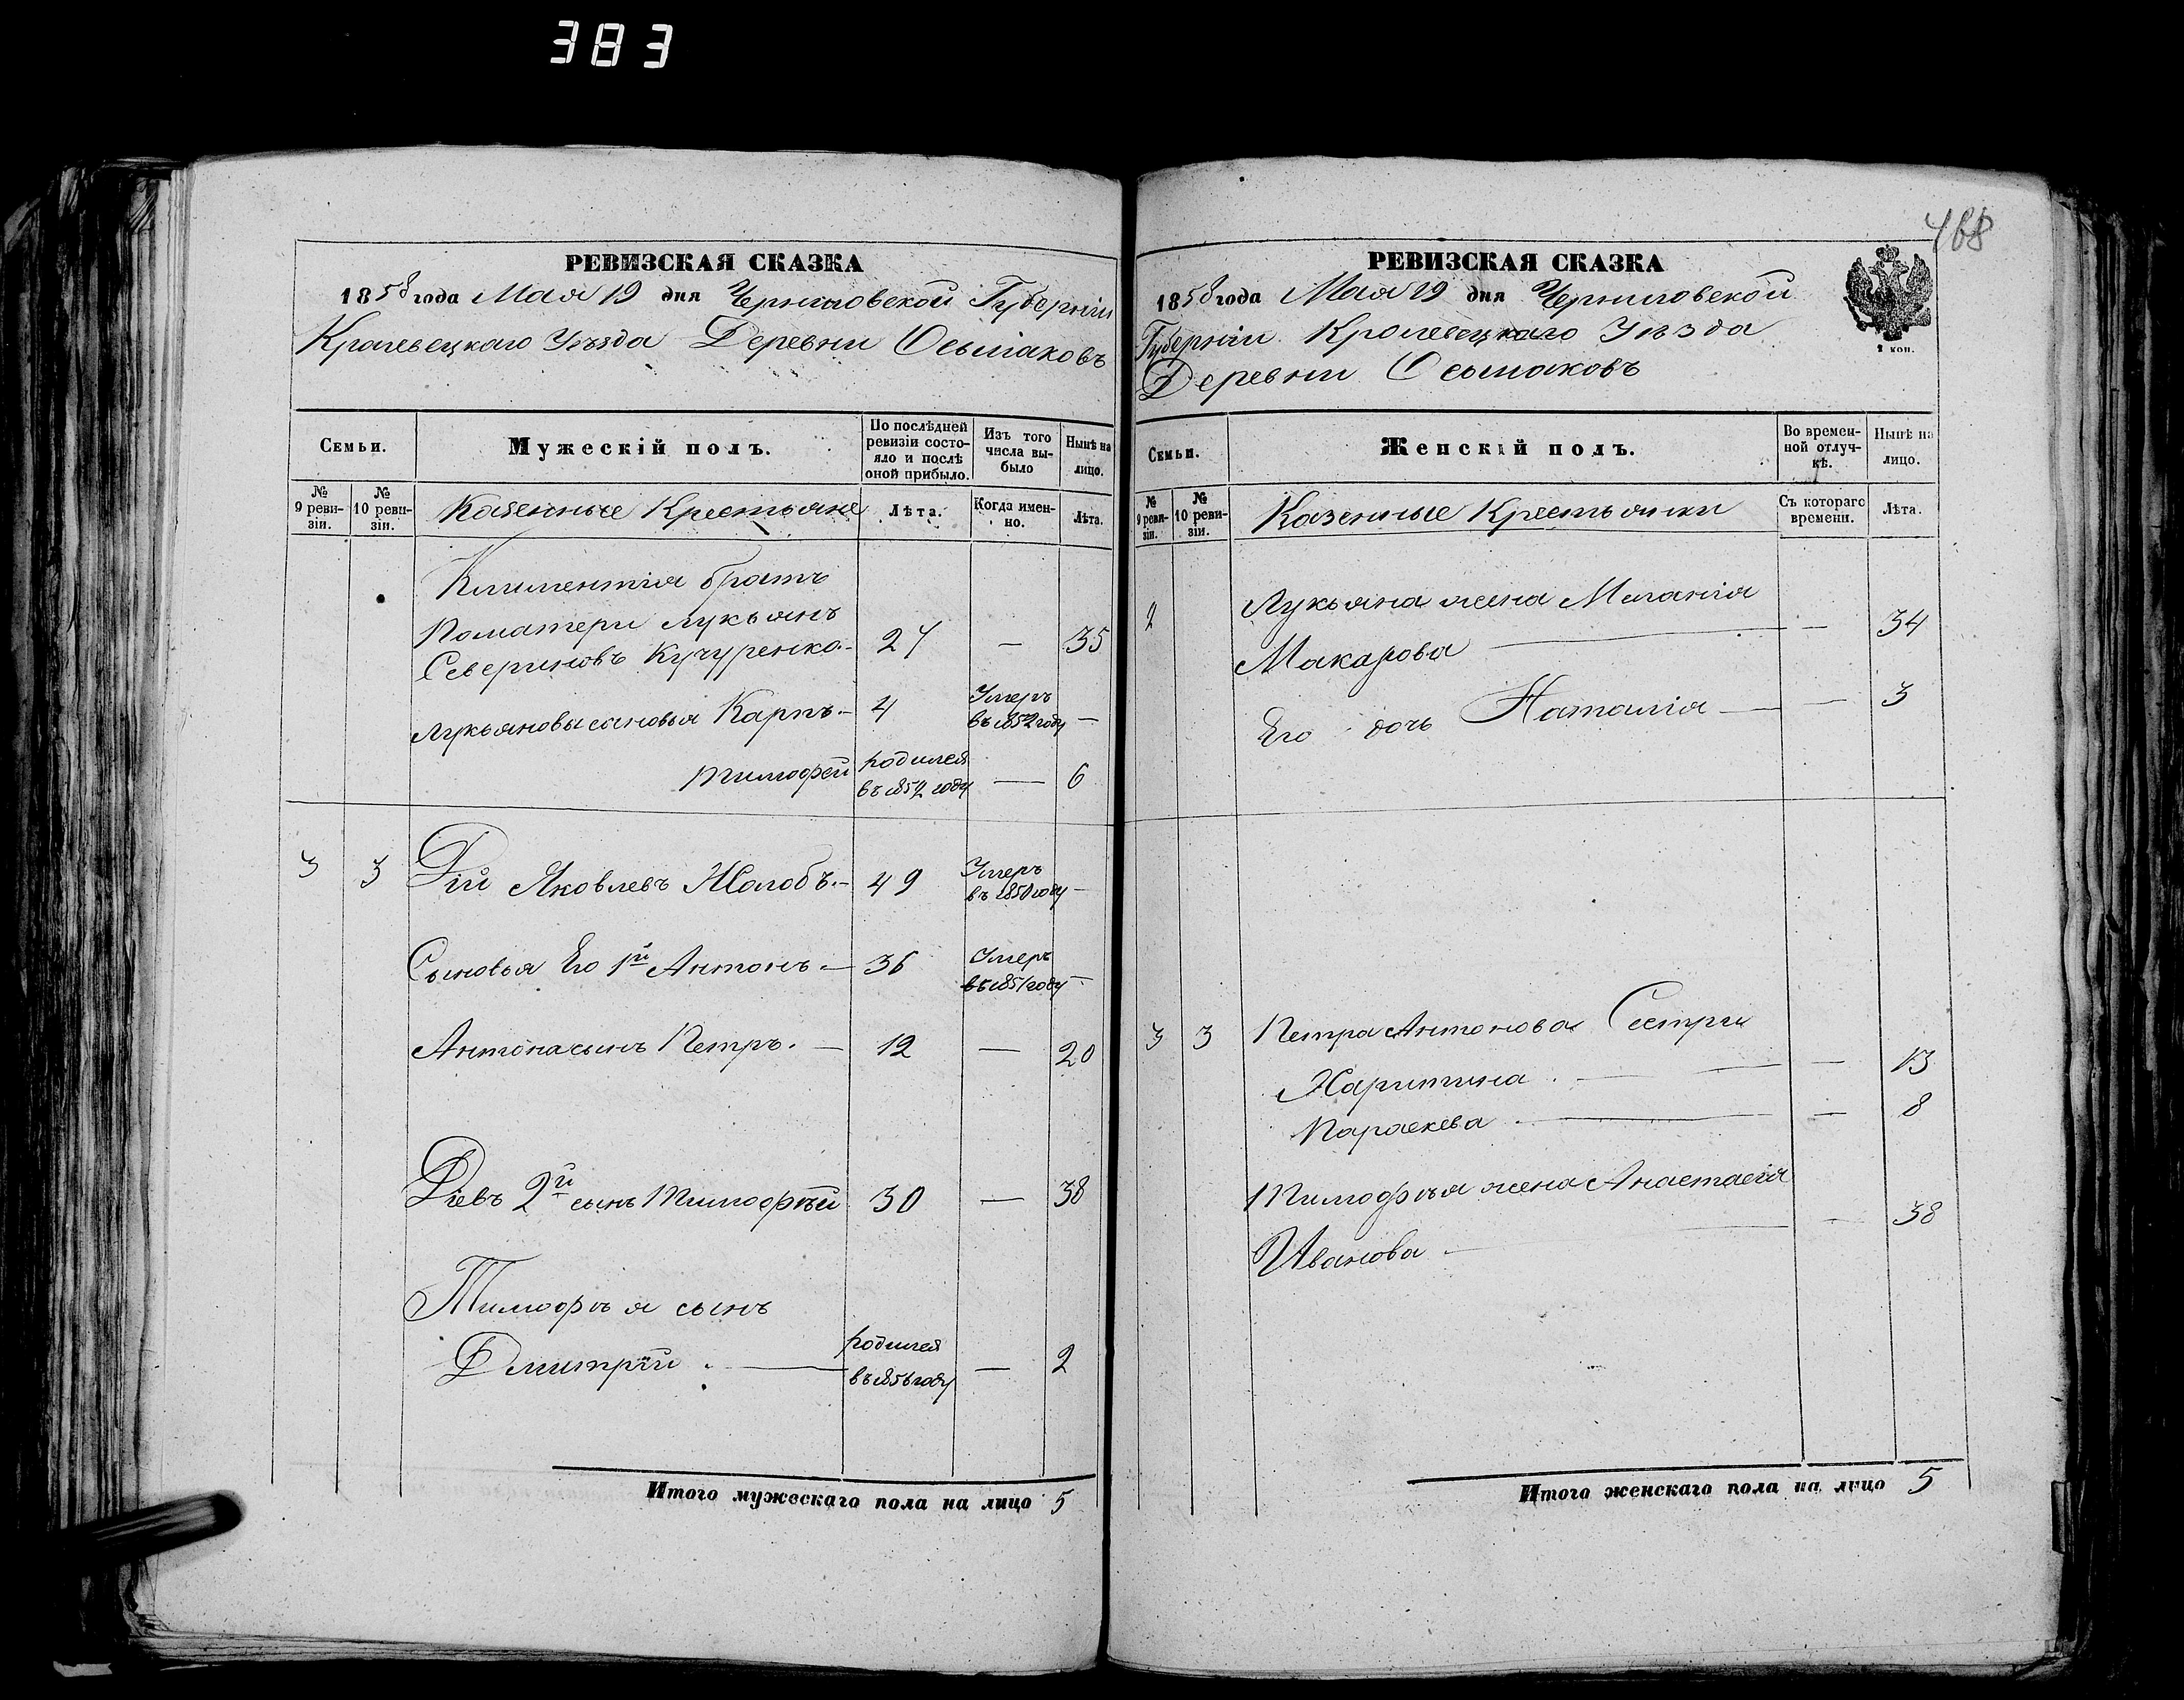 383
468
РЕВИЗСКАЯ СКАЗКА
1858 года Мая 19 дня Черниговской Губерніи
Кролевецкаго Уѣзда Деревни Осьмаковъ
Семьи.
Мужескій полъ.
По послѣдней ревизіи состояло и послѣ оной прибыло.
Изъ того числа выбыло
Нынѣ на лицо.
№ 9 ревизіи.
№ 10 ревизіи.
Казенные Крестьяне
Лѣта.
Когда именно.
Лѣта.
Климентія братъ
Поматери Лукьянъ
Севериновъ Кучуренко 27 — 35
Лукьяновы сыновья Карпъ 4 Умеръ въ 1852 году —
Тимофей родился въ 1852 году — 6
3 3 Дій Яковлевъ Жолобъ 49 Умеръ въ 1850 году —
Сыновья Его 1й Антонъ 36 Умеръ въ 1851 году —
Антона сынъ Петръ 12 — 20
Діевъ 2й сынъ Тимофѣй 30 — 38
Тимофѣя сынъ
Дмитрій родился въ 1856 году — 2
Итого мужескаго пола на лицо 5
РЕВИЗСКАЯ СКАЗКА
1858 года Мая 19 дня Черниговской
Губерніи Кролевецкаго Уѣзда
Деревни Осьмаковъ
2 коп.
Семьи.
Женскій полъ.
Во временной отлучкѣ.
Нынѣ на лицо.
№ 9 ревизіи.
№ 10 ревизіи.
Казенные Крестьянки
Съ котораго времени.
Лѣта.
2 Лукьяна жена Меланія
Макарова — 34
Его дочь Наталія — 3
3 3 Петра Антонова Сестры
Харитина — 13
Параскева — 8
Тимофѣя жена Анастасія
Иванова — 38
Итого женскаго пола на лицо 5